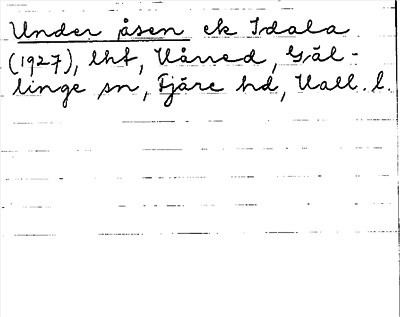 Under åsen ek Idala
(1927), lht, Vårred, Gäl-
linge sn, Fjäre hd, Hall. l.